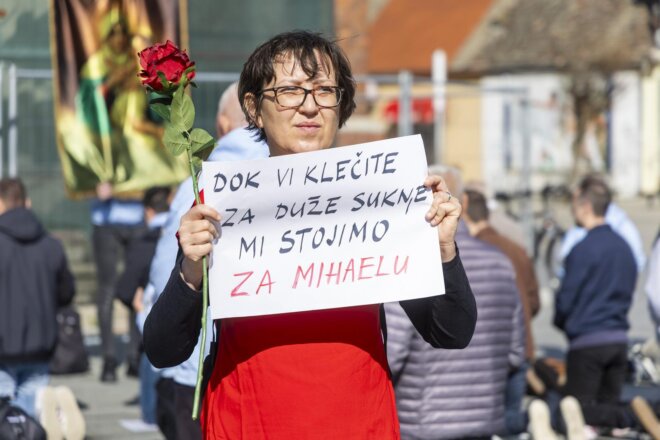 DOK VI KLEČITE
ZA DUŽE SUKNJE
MI STOJIMO
ZA MIHAELU